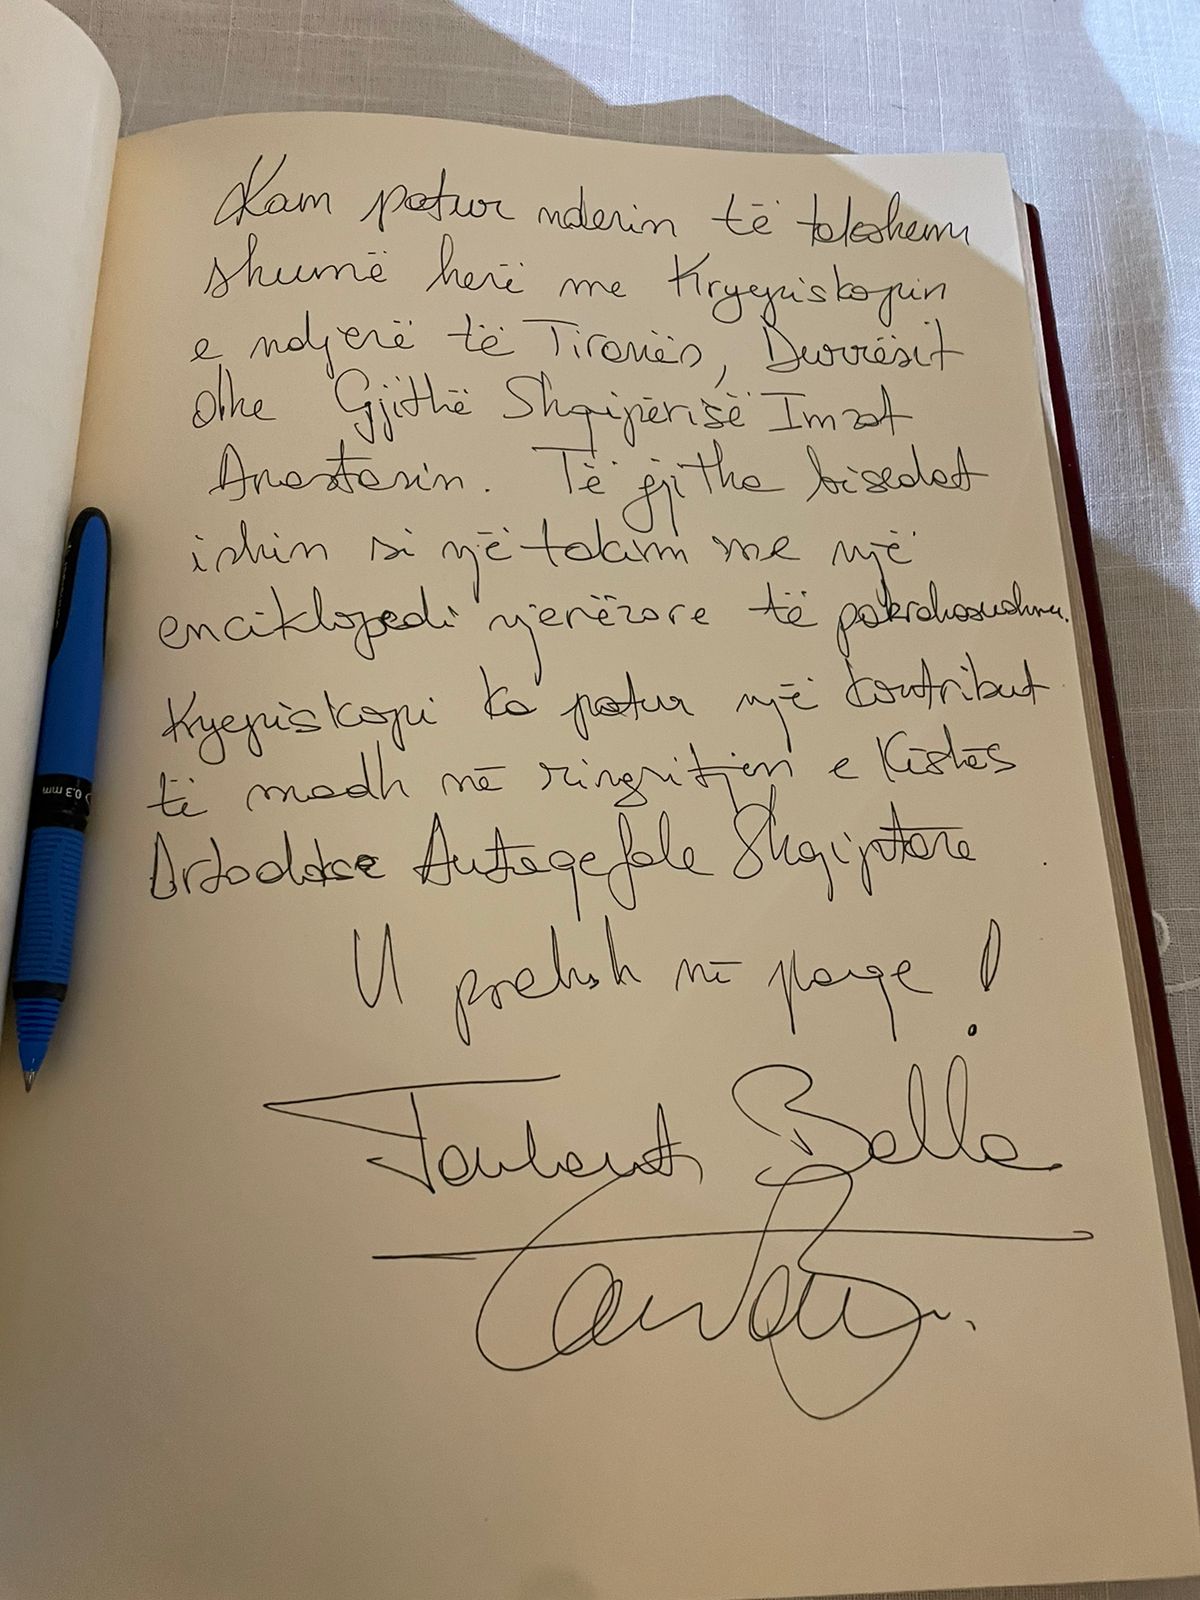 Kam patur nderin të takohem
shumë herë me Kryepiskopin
e ndjerë të Tiranës, Durrësit
dhe Gjithë Shqipërisë Imzot
Anastasin. Të gjitha bisedat
ishin si një takim me një
enciklopedi njerëzore të pakrahasushme.
Kryepiskopi ka patur një kontribut
të madh në ringritjen e Kishës
Ortodokse Autoqefale Shqiptare
U prehsh në paqe!
Taulant Balla
0.3 mm